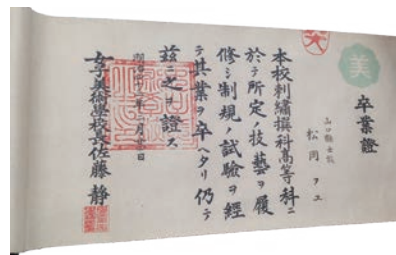 卒業證
山口縣士族
松岡フユ
本校刺繍撰科高等科ニ
於テ所定ノ技藝ヲ履
修シ制規ノ試験ヲ經
テ其業ヲ卒ヘタリ仍テ
茲ニ之ヲ證ス
明治十年月日
女子美術學校長佐藤静
美